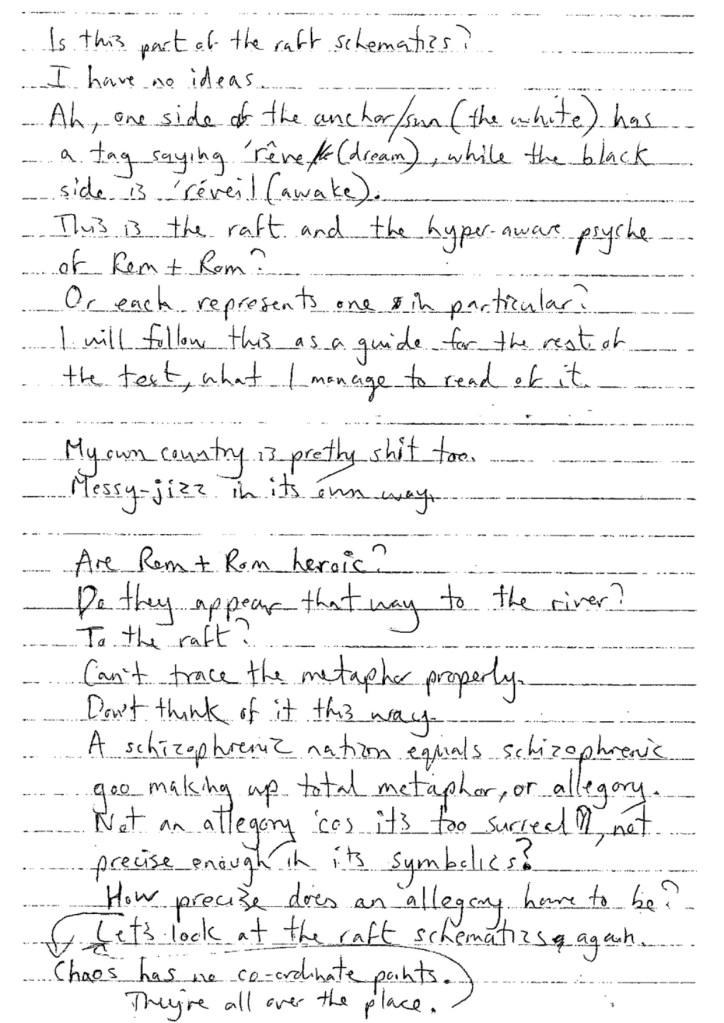 Is this part of the raft schematics?
I have no ideas.
Ah, one side of the anchor/sun (the white) has
a tag saying 'rêve (dream), while the black
side is 'réveil (awake).
This is the raft and the hyper-aware psyche
of Rem + Rom?
Or each represents one in particular?
I will follow this as a guide for the rest of
the test, what I manage to read of it.
My own country is pretty shit too.
Messy-jizz in its own way.
Are Rem + Rom heroic?
Do they appear that way to the river?
To the raft?
Can't trace the metaphor properly.
Don't think of it this way.
A schizophrenic nation equals schizophrenic
goo making up total metaphor, or allegory.
Not an allegory 'cos it's too surreal, not
precise enough in its symbolics?
How precise does an allegory have to be?
Let's look at the raft schematics again.
Chaos has no co-ordinate points.
They're all over the place.